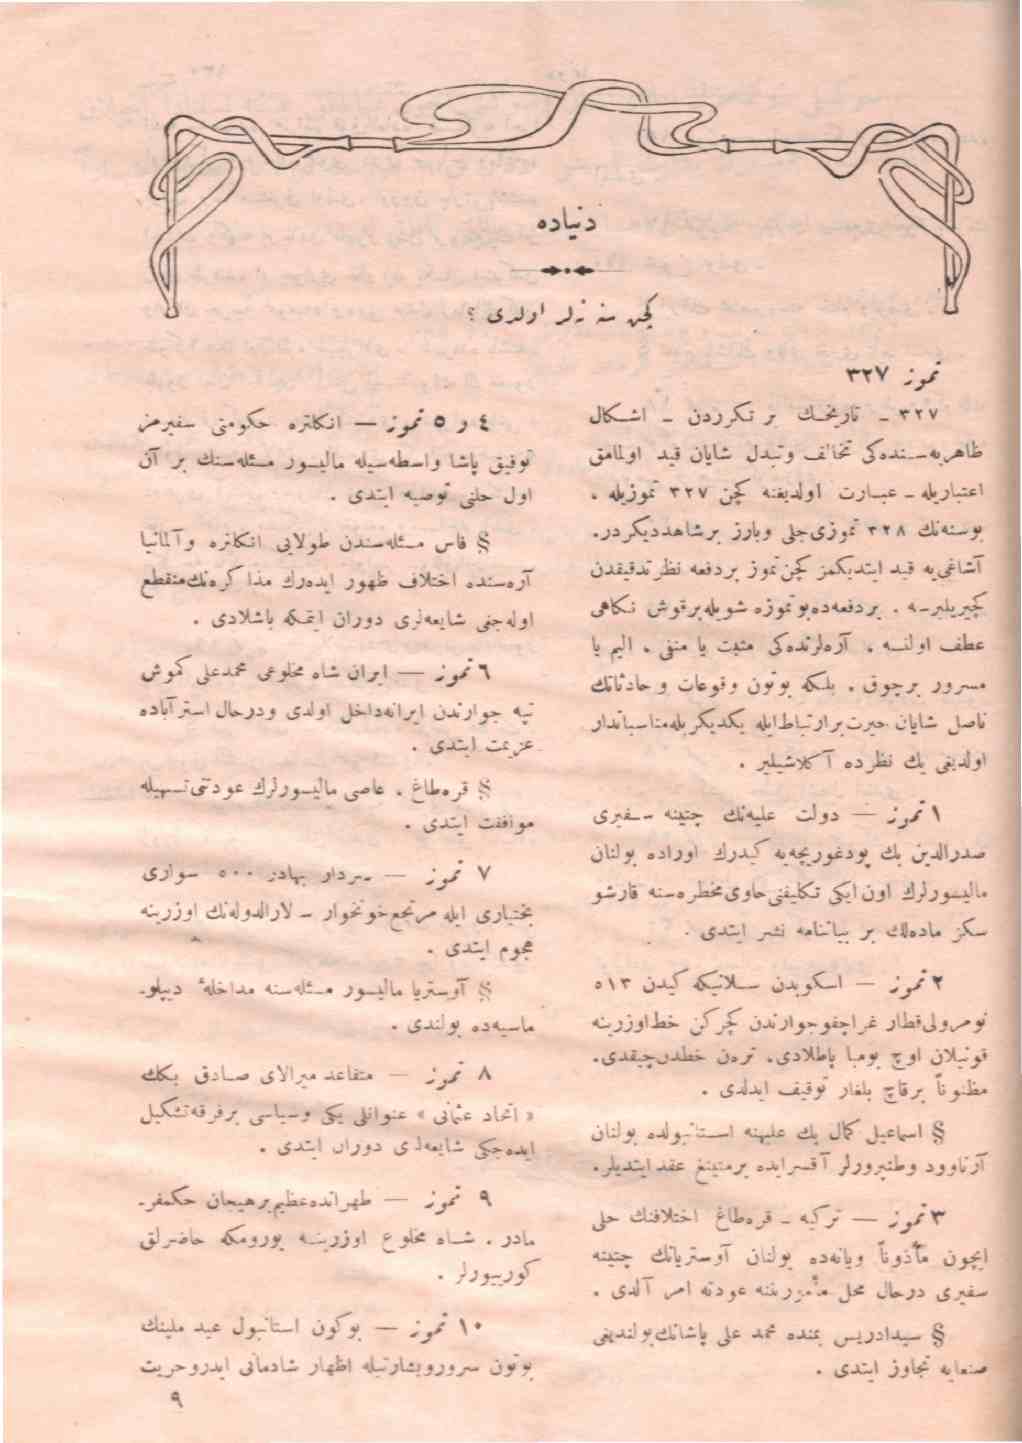 دنیاده
کچن سنه نه‌لر اولدی ؟
تموز ٣٢٧
٣٢٧ ـ تاریخك بر تكرردن ـ اشكال
ظاهریه‌سنده‌كی تخالف وتبدل شایان قید اولمامق
اعتباریله ـ عبارت اولدیغنه كچن ٣٢٧ تموزیله ،
بوسنه‌نك ٣٢٨ تموزی جلی وبارز برشاهددیكردر.
آشاغی‌یه قید ایتدیكمز كچن تموز بردفعه نظرتدقیقدن
كچیریلیرسه . بردفعه‌ده‌بوتموزه شویله‌برقوش نكاهی
عطف اولنسه ، آره‌لرنده‌كی مثبت یا منفی ، الیم یا
مسرور برچوق . بلكه بوتون وقوعات و حادثاتك
ناصل شایان حیرت‌برارتباط‌ایله یكدیكریله‌مناسباتدار
اولدیغی یك نظرده آكلاشیلیر .
١ تموز — دولت علیه‌نك چتینه سفیری
صدرالدین بك پودغوریچه‌یه كیدرك اوراده بولنان
مالیسورلرك اون ایكی تكلیفنی حاوی مخطره‌سنه قارشو
سكز ماده‌لك بر بیاننامه نشر ایتدی .
٢ تموز — اسكوبدن سلانیكه كیدن ٥١٣
نومرولی‌قطار غراچفوجوارندن كچركن خط‌اوزرینه
قونیلان اوچ بومبا پاطلادی. ترەن خطدن‌چیقدی.
مظنوناً برقاچ بلغار توقیف ایدلدی .
§ اسماعیل كمال بك علیهنه استانبولده بولنان
آرناوود وطنپرورلر آقسرایده برمیتینغ عقد ایتدیلر.
٣ تموز — تركیه ـ قره‌طاغ اختلافنك حلی
ایچون مأذوناً ویانه‌ده بولنان آوستریانك چتینه
سفیری درحال محل مأموریتنه عودته امر آلدی .
§ سیدادریس یمنده محمد علی پاشانك‌بولندیغی
صنعایه تجاوز ایتدی .
٤ و ٥ تموز — انكلتره حكومتی سفیرمز
توفیق پاشا واسطه‌سیله مالیسور مسئله‌سنك بر آن
اول حلنی توصیه ایتدی .
§ فاس مسئله‌سندن طولایی انكلتره وآلمانیا
آره‌سنده اختلاف ظهور ایده‌رك مذا كره‌نك‌منقطع
اوله‌جغی شایعه‌لری دوران ایتمكه باشلادی .
٦ تموز — ایران شاه مخلوعی محمدعلی كموش
تپه جوارندن ایرانه‌داخل اولدی ودرحال استرآباده
عزیمت ایتدی .
§ قره‌طاغ ، عاصی مالیسورلرك عودتنی‌تسهیله
موافقت ایتدی .
٧ تموز — سردار بهادر ٥٠٠ سواری
بختیاری ایله مرتجع‌خونخوار ـ لارالدوله‌نك اوزرینه
هجوم ایتدی .
§ آوستریا مالیسور مسئله‌سنه مداخلهٔ دیپلوـ
ماسیه‌ده بولندی .
٨ تموز — متقاعد میرالای صادق بكك
« اتحاد عثمانی » عنوانلی یكی وسیاسی برفرقه‌تشكیل
ایده‌جكی شایعه‌لری دوران ایتدی .
٩ تموز — طهرانده‌عظیم‌برهیجان حكمفرـ
مادر . شاه مخلوع اوزرینه یورومكه حاضرلق
كوریبورلر .
١٠ تموز — بوكون استانبول عید ملینك
بوتون سروروبشارتیله اظهار شادمانی ایدروحریت
٩